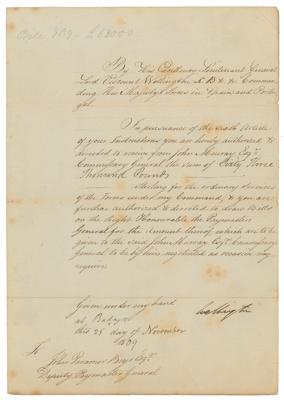 Bills 309 - £63000
By His Excellency Lieutenant General
Lord Viscount Wellington K B &c &c Comman-
ding His Majesty's Forces in Spain and Portu-
gal
In pursuance of the sixth Article
of your Instructions you are hereby authorized &
directed to receive from John Murray Esqr
Commissary General the sum of Sixty Three
Thousand Pounds
Sterling for the ordinary Services
of the Forces under my Command, & you are
further Authorized & directed to draw Bills
on the Right Honourable the Paymaster
General for the Amount thereof which are to be
given to the said John Murray Esqr Commissary
General to be by him negotiated as occasion may
require
Given under my hand
at Badajoz
this 25 day of November
1809
Wellington
To
John Boys Esqr
Deputy Paymaster General